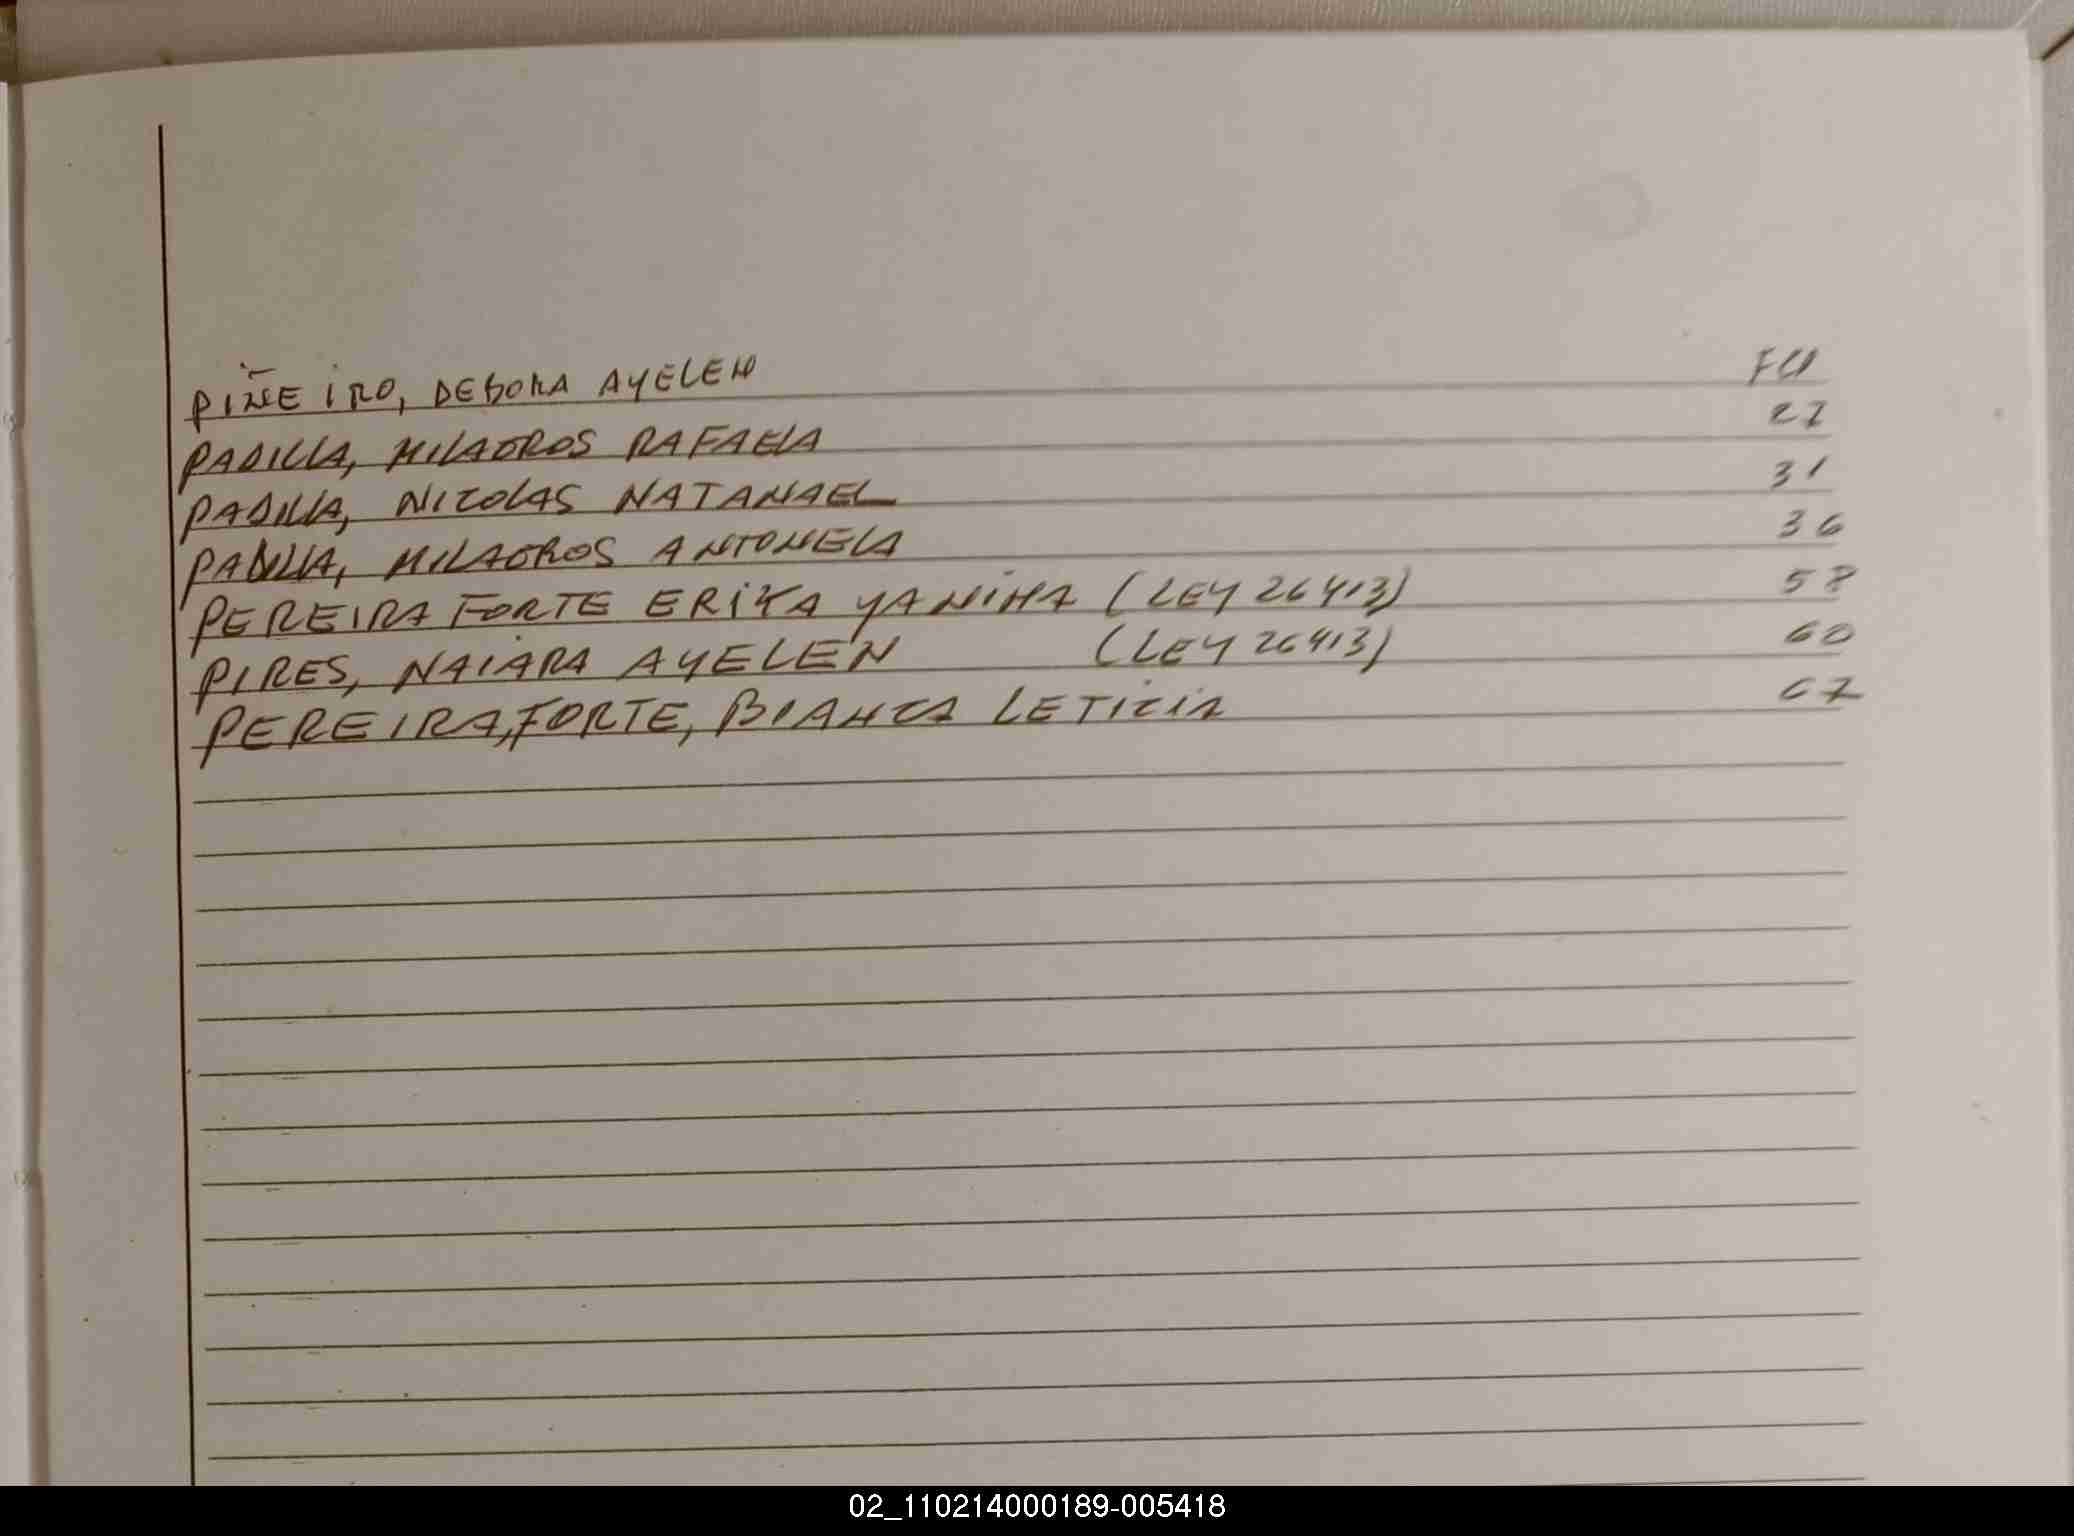 PIÑEIRO, DEBORA AYELEN
PADILLA, MILAGROS RAFAELA 27
PADILLA, NICOLAS NATANAEL 31
PADILLA, MILAGROS ANTONELA 36
PEREIRA FORTE ERIKA YANINA (LEY 26413) 58
PIRES, NAIARA AYELEN (LEY 26413) 60
PEREIRA, FORTE, BIANCA LETICIA 67
02_110214000189-005418